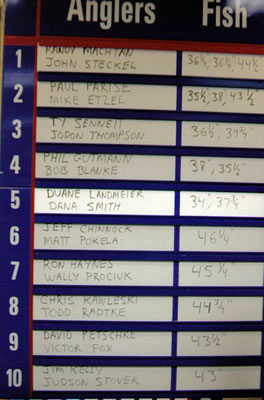 Anglers Fish
1 RANDY MACHTAN
JOHN STECKEL 36¼", 36¼", 44½
2 PAUL PARISE
MIKE ETZEL 35½", 38", 43½"
3 TY SENNETT
JODON THOMPSON 36½", 39¾"
4 PHIL GUTMANN
BOB BLANKE 38", 35½"
5 DUANE LANDMEIER
DANA SMITH 34", 37¾"
6 JEFF CHINNOCK
MATT POKELA 46¼"
7 RON HAYNES
WALLY PROCIUK 45¼"
8 CHRIS KAWLESKI
TODD RADTKE 44¾"
9 DAVID PETSCHKE
VICTOR FOX 43½"
10 JIM KELLY
JUDSON STOVER 43"